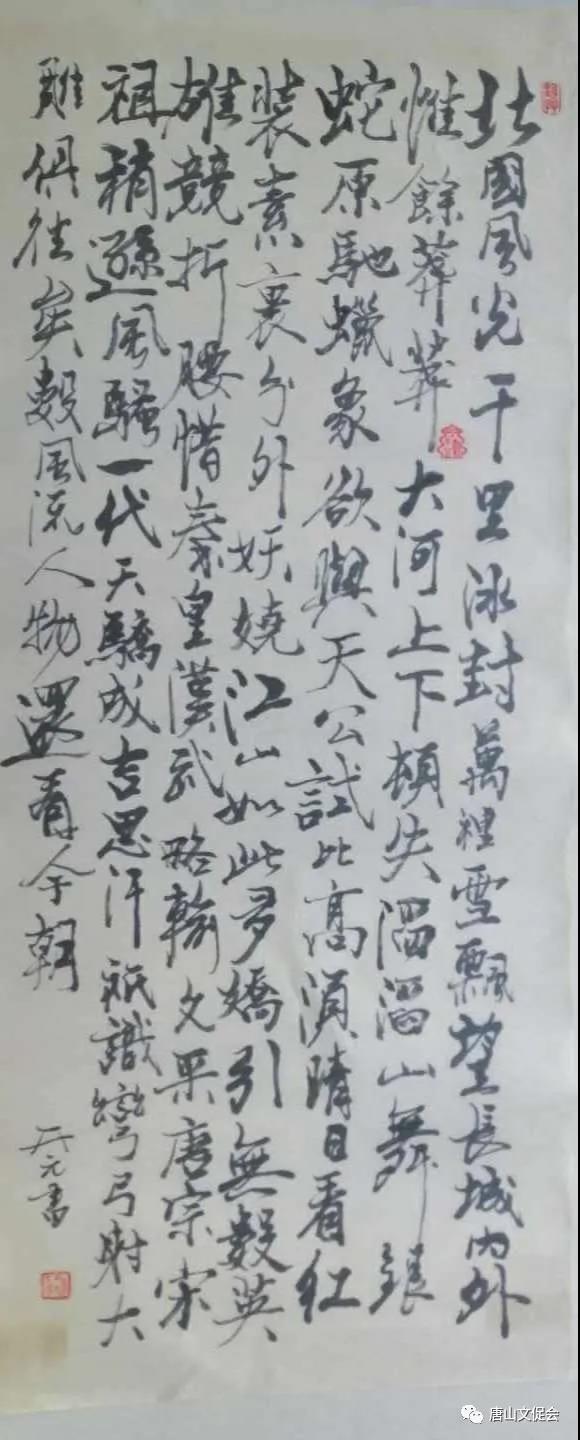 北國風光千里冰封萬裡雪飄望長城內外
惟餘莽莽大河上下頓失滔滔山舞銀
蛇原馳蠟象欲與天公試比高須晴日看紅
裝素裹分外妖嬈江山如此多嬌引無數英
雄競折腰惜秦皇漢武略輸文采唐宗宋
祖稍遜風騷一代天驕成吉思汗祇識彎弓射大
雕俱往矣數風流人物還看今朝
天元書
唐山文促会